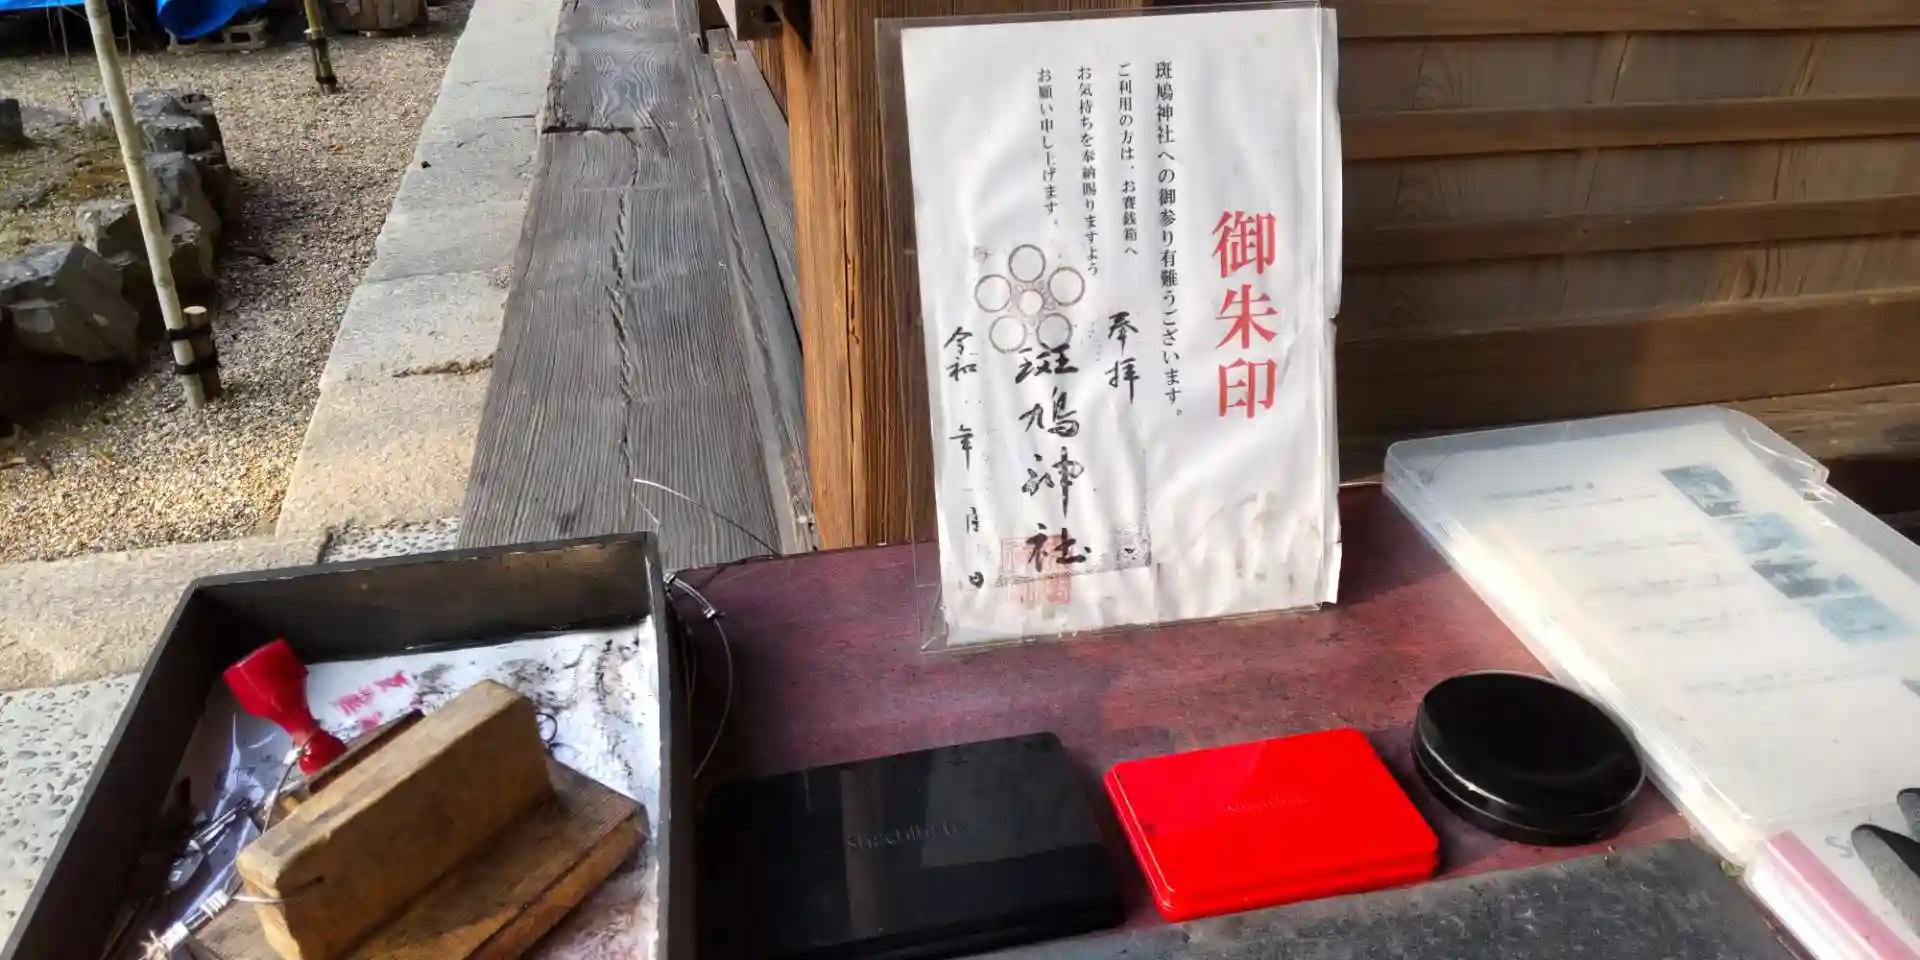 御朱印
斑鳩神社への御参り有難うございます。
ご利用の方は、お賽銭箱へ
お気持ちを奉納賜りますよう
お願い申し上げます。
奉拝
斑鳩神社
令和 年 月 日
Shachihata
Shachihata